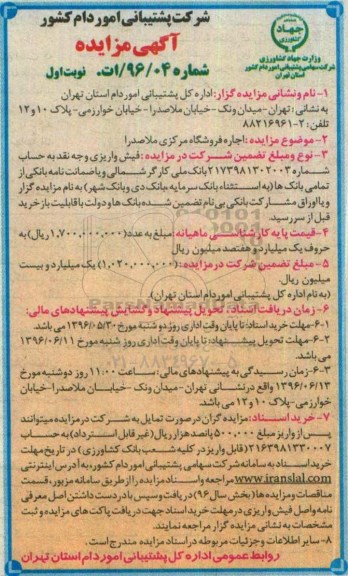 شرکت پشتیبانی امور دام کشور
آگهی مزایده
شماره ۹۶/۰۴/ت. نوبت اول
جهاد
کشاورزی
وزارت جهاد کشاورزی
شرکت سهامی پشتیبانی امور دام کشور
استان تهران
۱- نام و نشانی مزایده گزار: اداره کل پشتیبانی امور دام استان تهران
به نشانی: تهران-میدان ونک - خیابان ملاصدرا - خیابان خوارزمی- پلاک ۱۰ و ۱۲
تلفن: ۲-۸۸۲۱۶۹۶۱
۲- موضوع مزایده: اجاره فروشگاه مرکزی ملاصدرا
۳- نوع و مبلغ تضمین شرکت در مزایده: فیش واریزی وجه نقد به حساب
شماره ۲۱۷۳۹۸۱۳۰۲۰۰۳ بانک ملی کارگر شمالی و یا ضمانت نامه بانکی از
تمامی بانک ها (به استثناء بانک سرمایه، بانک دی و بانک شهر) به نام مزایده گزار
و یا اوراق مشارکت بانکی بی نام تضمین شده بانک ها و دولت با قابلیت بازخرید
قبل از سررسید.
۴- قیمت پایه کارشناسی ماهیانه: مبلغ به عدد (۱,۷۰۰,۰۰۰,۰۰۰ ریال) به
حروف یک میلیارد و هفتصد میلیون ریال
۵- مبلغ تضمین شرکت در مزایده: (۱,۰۲۰,۰۰۰,۰۰۰) یک میلیارد و بیست
میلیون ریال.
(به نام اداره کل پشتیبانی امور دام استان تهران)
۶- زمان دریافت اسناد، تحویل پیشنهاد و گشایش پیشنهادهای مالی:
۶-۱- مهلت خرید اسناد: تا پایان وقت اداری روز دو شنبه مورخ ۱۳۹۶/۰۵/۳۰ می باشد.
۶-۲- مهلت تحویل پیشنهاد: تا پایان وقت اداری روز شنبه مورخ ۱۳۹۶/۰۶/۱۱
می باشد.
۶-۳- زمان رسیدگی به پیشنهادهای مالی: ساعت ۱۱:۰۰ روز دوشنبه مورخ
۱۳۹۶/۰۶/۱۳ واقع در نشانی تهران -میدان ونک -خیابان ملاصدرا-خیابان
خوارزمی-پلاک ۱۰ و ۱۲ می باشد.
۷- خرید اسناد: مزایده گران در صورت تمایل به شرکت در مزایده میتوانند
پس از واریز مبلغ ۵۰۰,۰۰۰ پانصد هزار ریال (غیر قابل استرداد) به حساب
۲۱۶۳۹۸۱۳۳۰۰۰۷ (قابل واریز در کلیه شعب بانک کشاورزی) در تاریخ مهلت
خرید اسناد به سامانه شرکت سهامی پشتیبانی امور دام کشور، به آدرس اینترنتی
www.iranslal.com مراجعه و اسناد مزایده را از طریق سامانه مزبور، قسمت
مناقصات و مزایده ها (بخش سال ۹۶) دریافت و سپس با در دست داشتن اصل معرفی
نامه و اصل فیش واریزی در مهلت خرید اسناد جهت دریافت پاکت های مزایده و ثبت
مشخصات به نشانی مزایده گزار مراجعه نمایند.
۸- سایر اطلاعات و جزئیات مربوطه در اسناد مزایده مندرج است.
روابط عمومی اداره کل پشتیبانی امور دام استان تهران